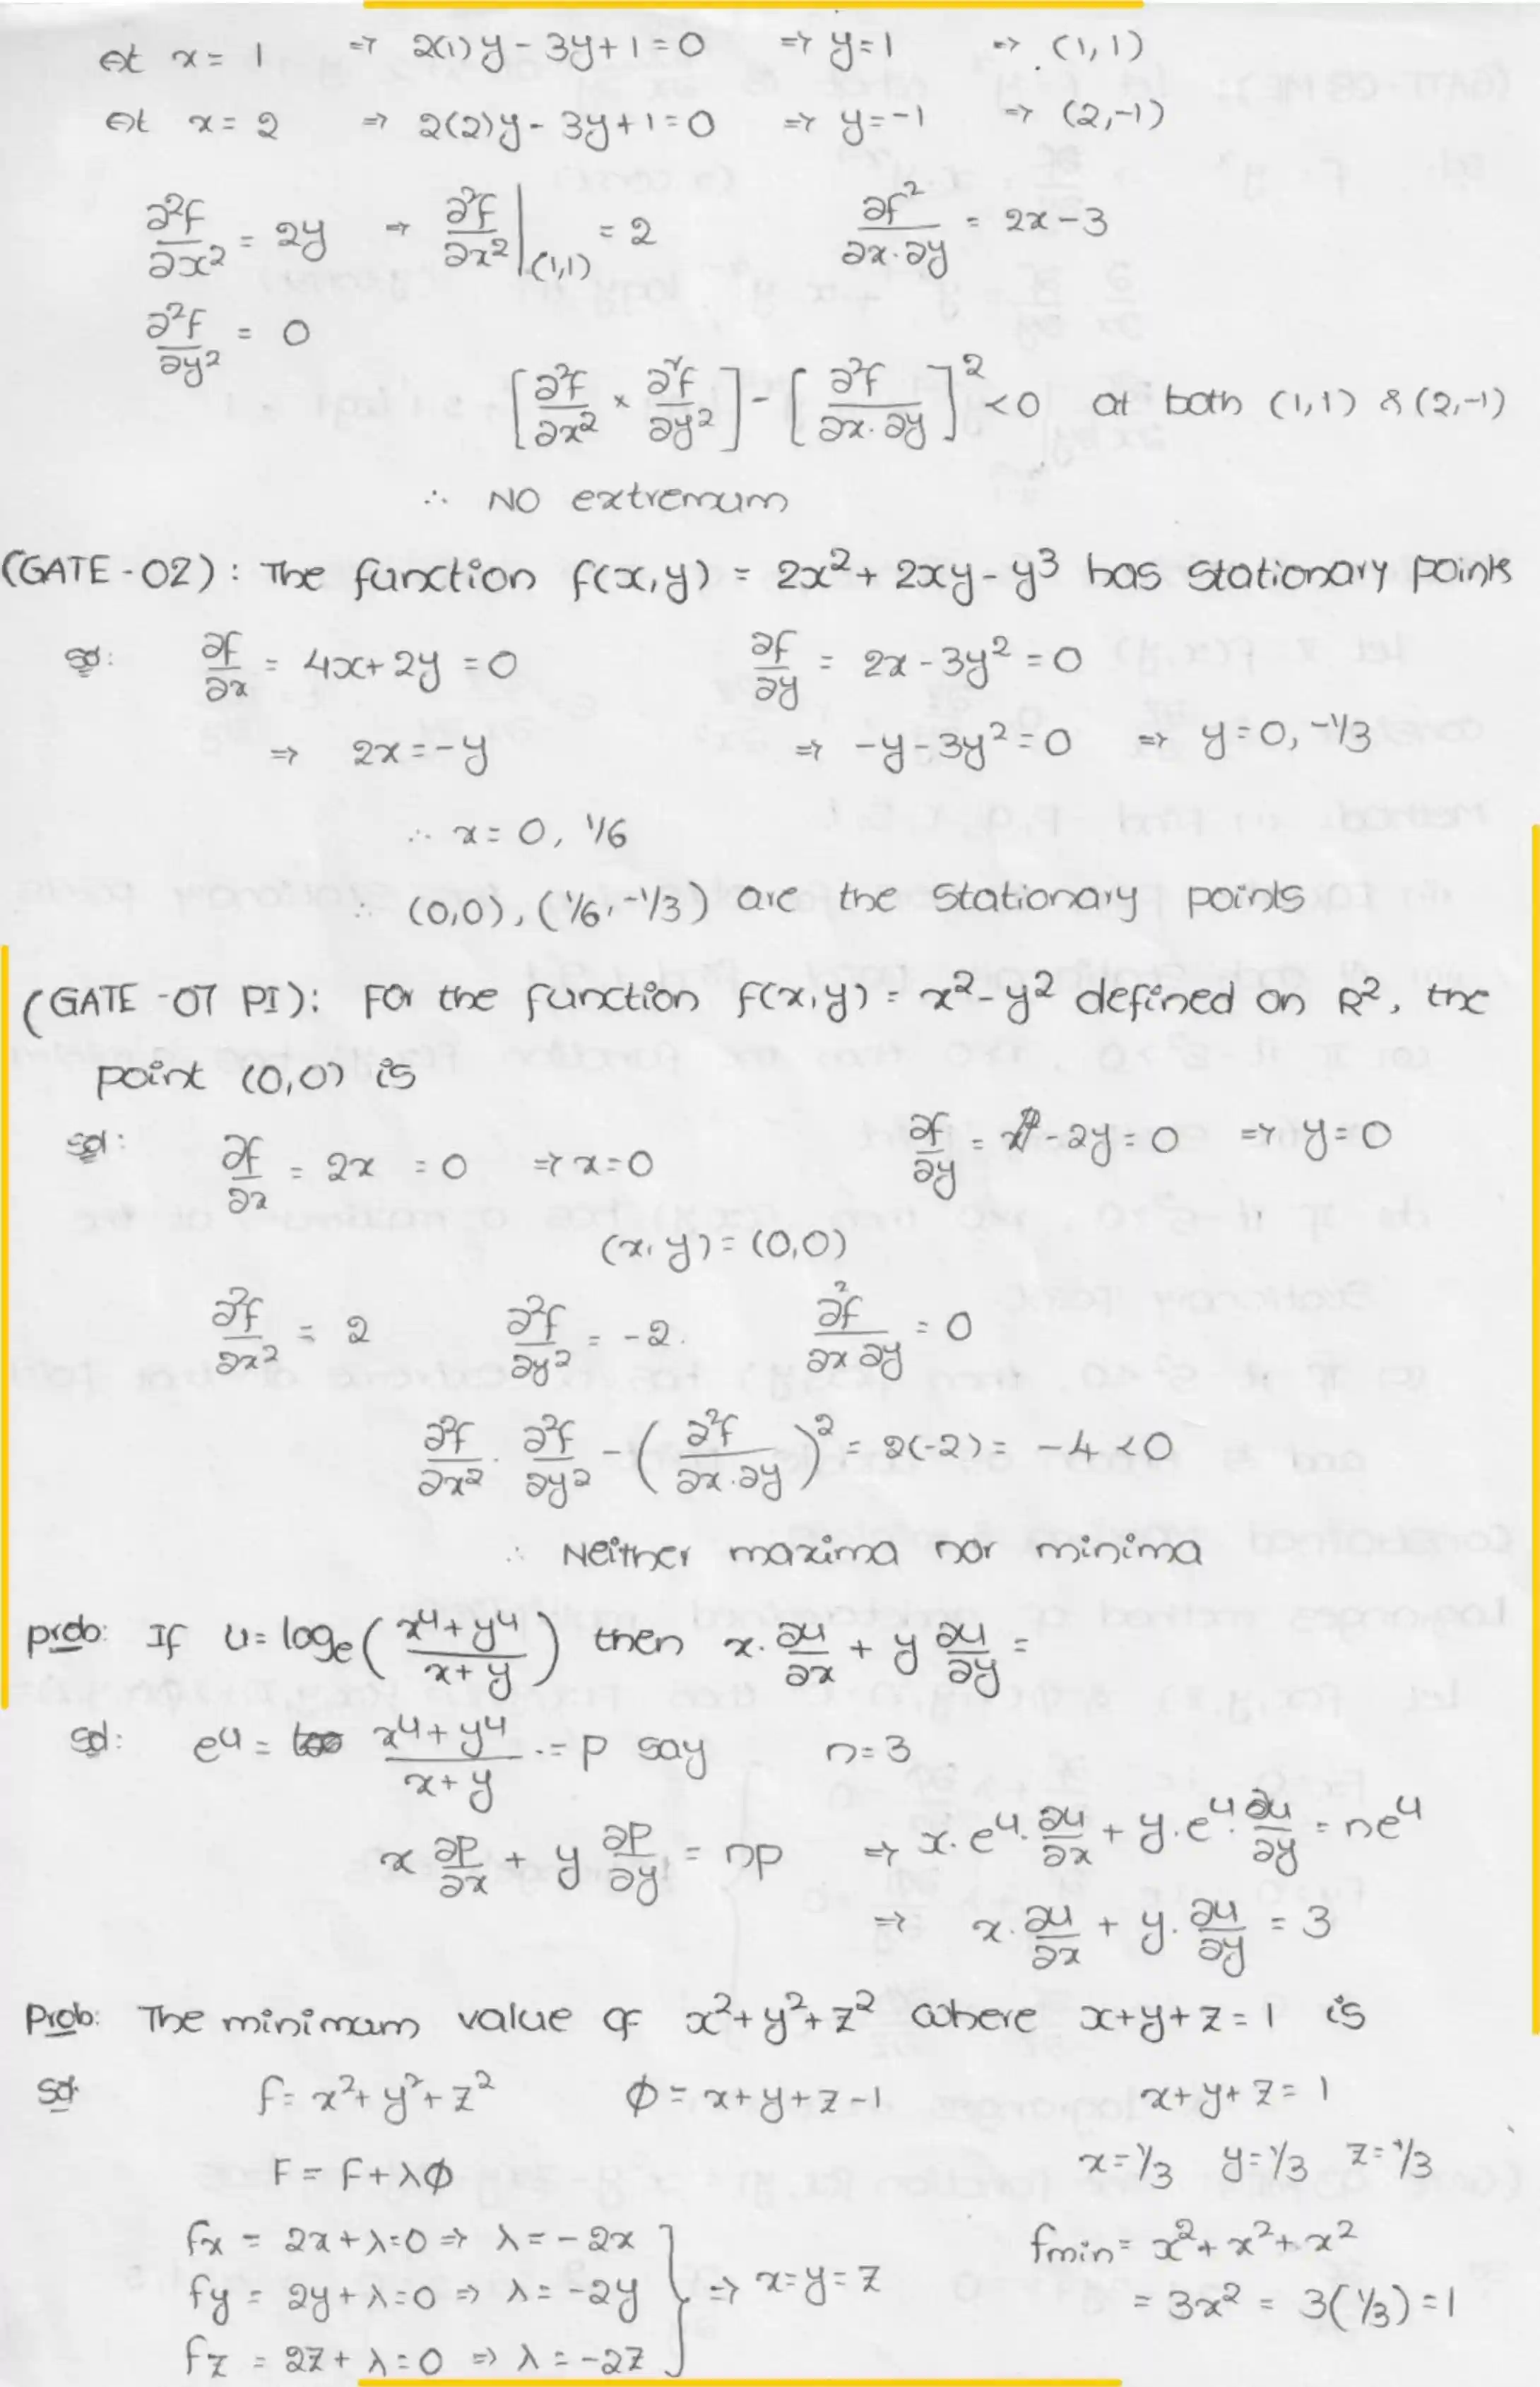 At x = 1 ⇒ 2(1)y - 3y + 1 = 0 ⇒ y = 1 ⇒ (1,1)
At x = 2 ⇒ 2(2)y - 3y + 1 = 0 ⇒ y = -1 ⇒ (2,-1)
∂²f/∂x² = 2y ⇒ ∂²f/∂x² |(1,1) = 2 ∂f²/∂x.∂y = 2x - 3
∂²f/∂y² = 0
[∂²f/∂x² × ∂²f/∂y²] - [∂²f/∂x.∂y]² < 0 at both (1,1) & (2,-1)
∴ NO extremum
(GATE-02): The function f(x,y) = 2x² + 2xy - y³ has stationary points
Sol: ∂f/∂x = 4x + 2y = 0 ∂f/∂y = 2x - 3y² = 0
⇒ 2x = -y ⇒ -y - 3y² = 0 ⇒ y = 0, -1/3
∴ x = 0, 1/6
∴ (0,0), (1/6, -1/3) are the stationary points
(GATE-07 PI): For the function f(x,y) = x² - y² defined on R², the
point (0,0) is
Sol: ∂f/∂x = 2x = 0 ⇒ x = 0 ∂f/∂y = -2y = 0 ⇒ y = 0
(x,y) = (0,0)
∂²f/∂x² = 2 ∂²f/∂y² = -2. ∂²f/∂x ∂y = 0
∂²f/∂x² . ∂²f/∂y² - (∂²f/∂x.∂y)² = 2(-2) = -4 < 0
∴ Neither maxima nor minima
prob: If u = logₑ((x⁴ + y⁴)/(x + y)) then x. ∂u/∂x + y ∂u/∂y =
Sol: eᵘ = (x⁴ + y⁴)/(x + y) = p say n = 3
x ∂p/∂x + y ∂p/∂y = np ⇒ x. eᵘ. ∂u/∂x + y. eᵘ. ∂u/∂y = neᵘ
⇒ x. ∂u/∂x + y. ∂u/∂y = 3
Prob: The minimum value of x² + y² + z² where x + y + z = 1 is
Sol: f = x² + y² + z² ϕ = x + y + z - 1 x + y + z = 1
F = f + λϕ x = 1/3 y = 1/3 z = 1/3
fx = 2x + λ = 0 ⇒ λ = -2x fmin = x² + x² + x²
fy = 2y + λ = 0 ⇒ λ = -2y } ⇒ x = y = z = 3x² = 3(1/3) = 1
fz = 2z + λ = 0 ⇒ λ = -2z